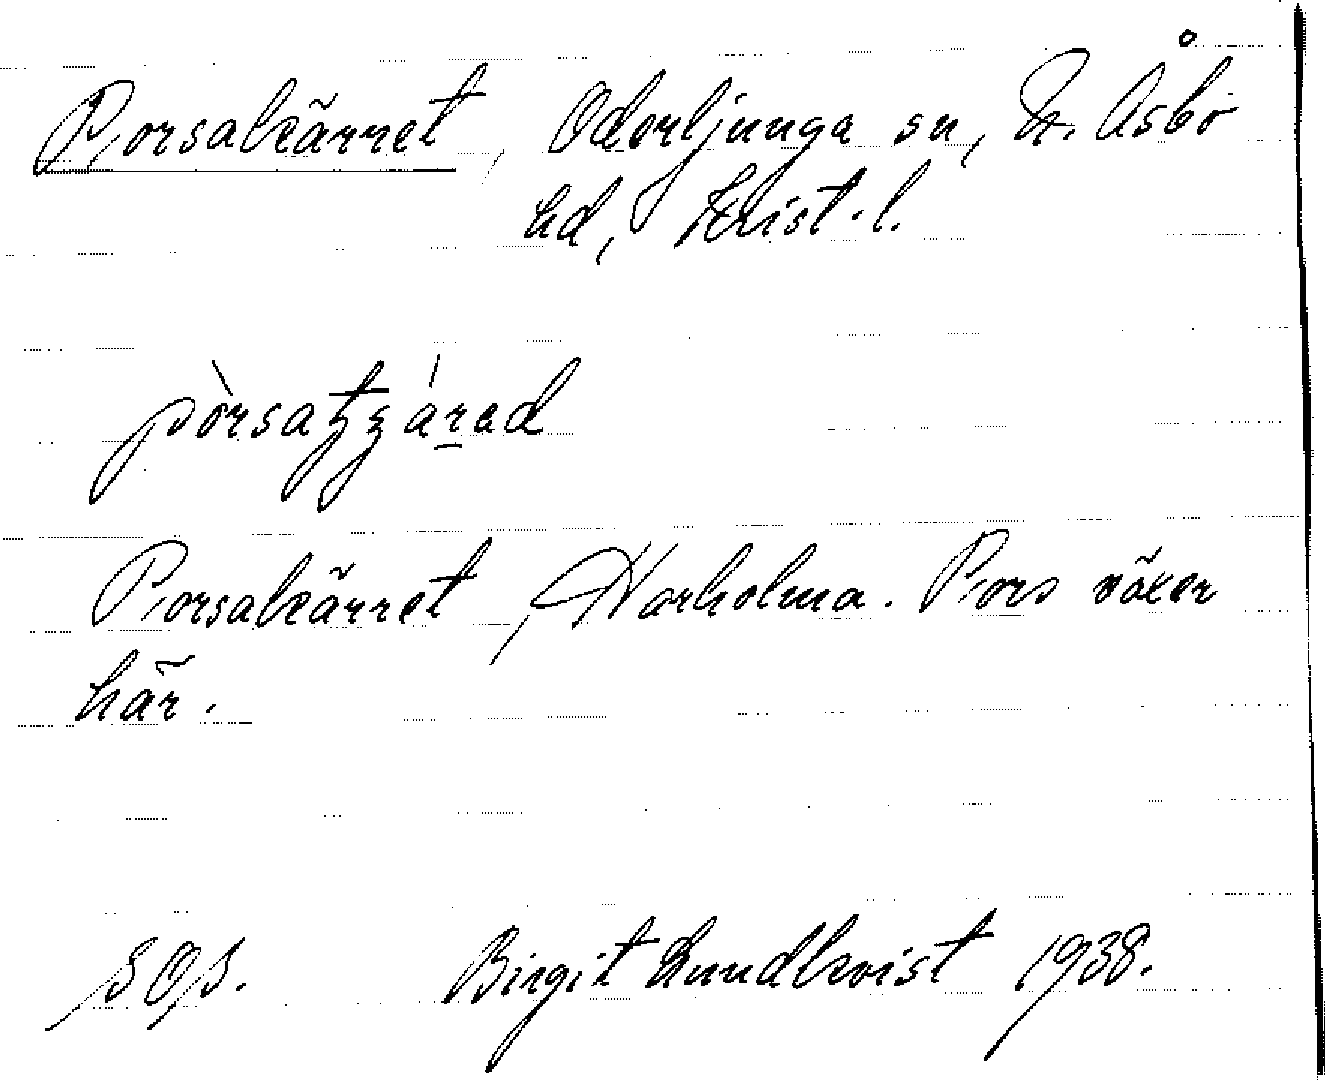 Porsakärret, Oderljunga sn, N. Åsbo
hd, Krist. l.
Porsakärret, Harholma. Pors växer
här.
Birgit Lundkvist 1938.